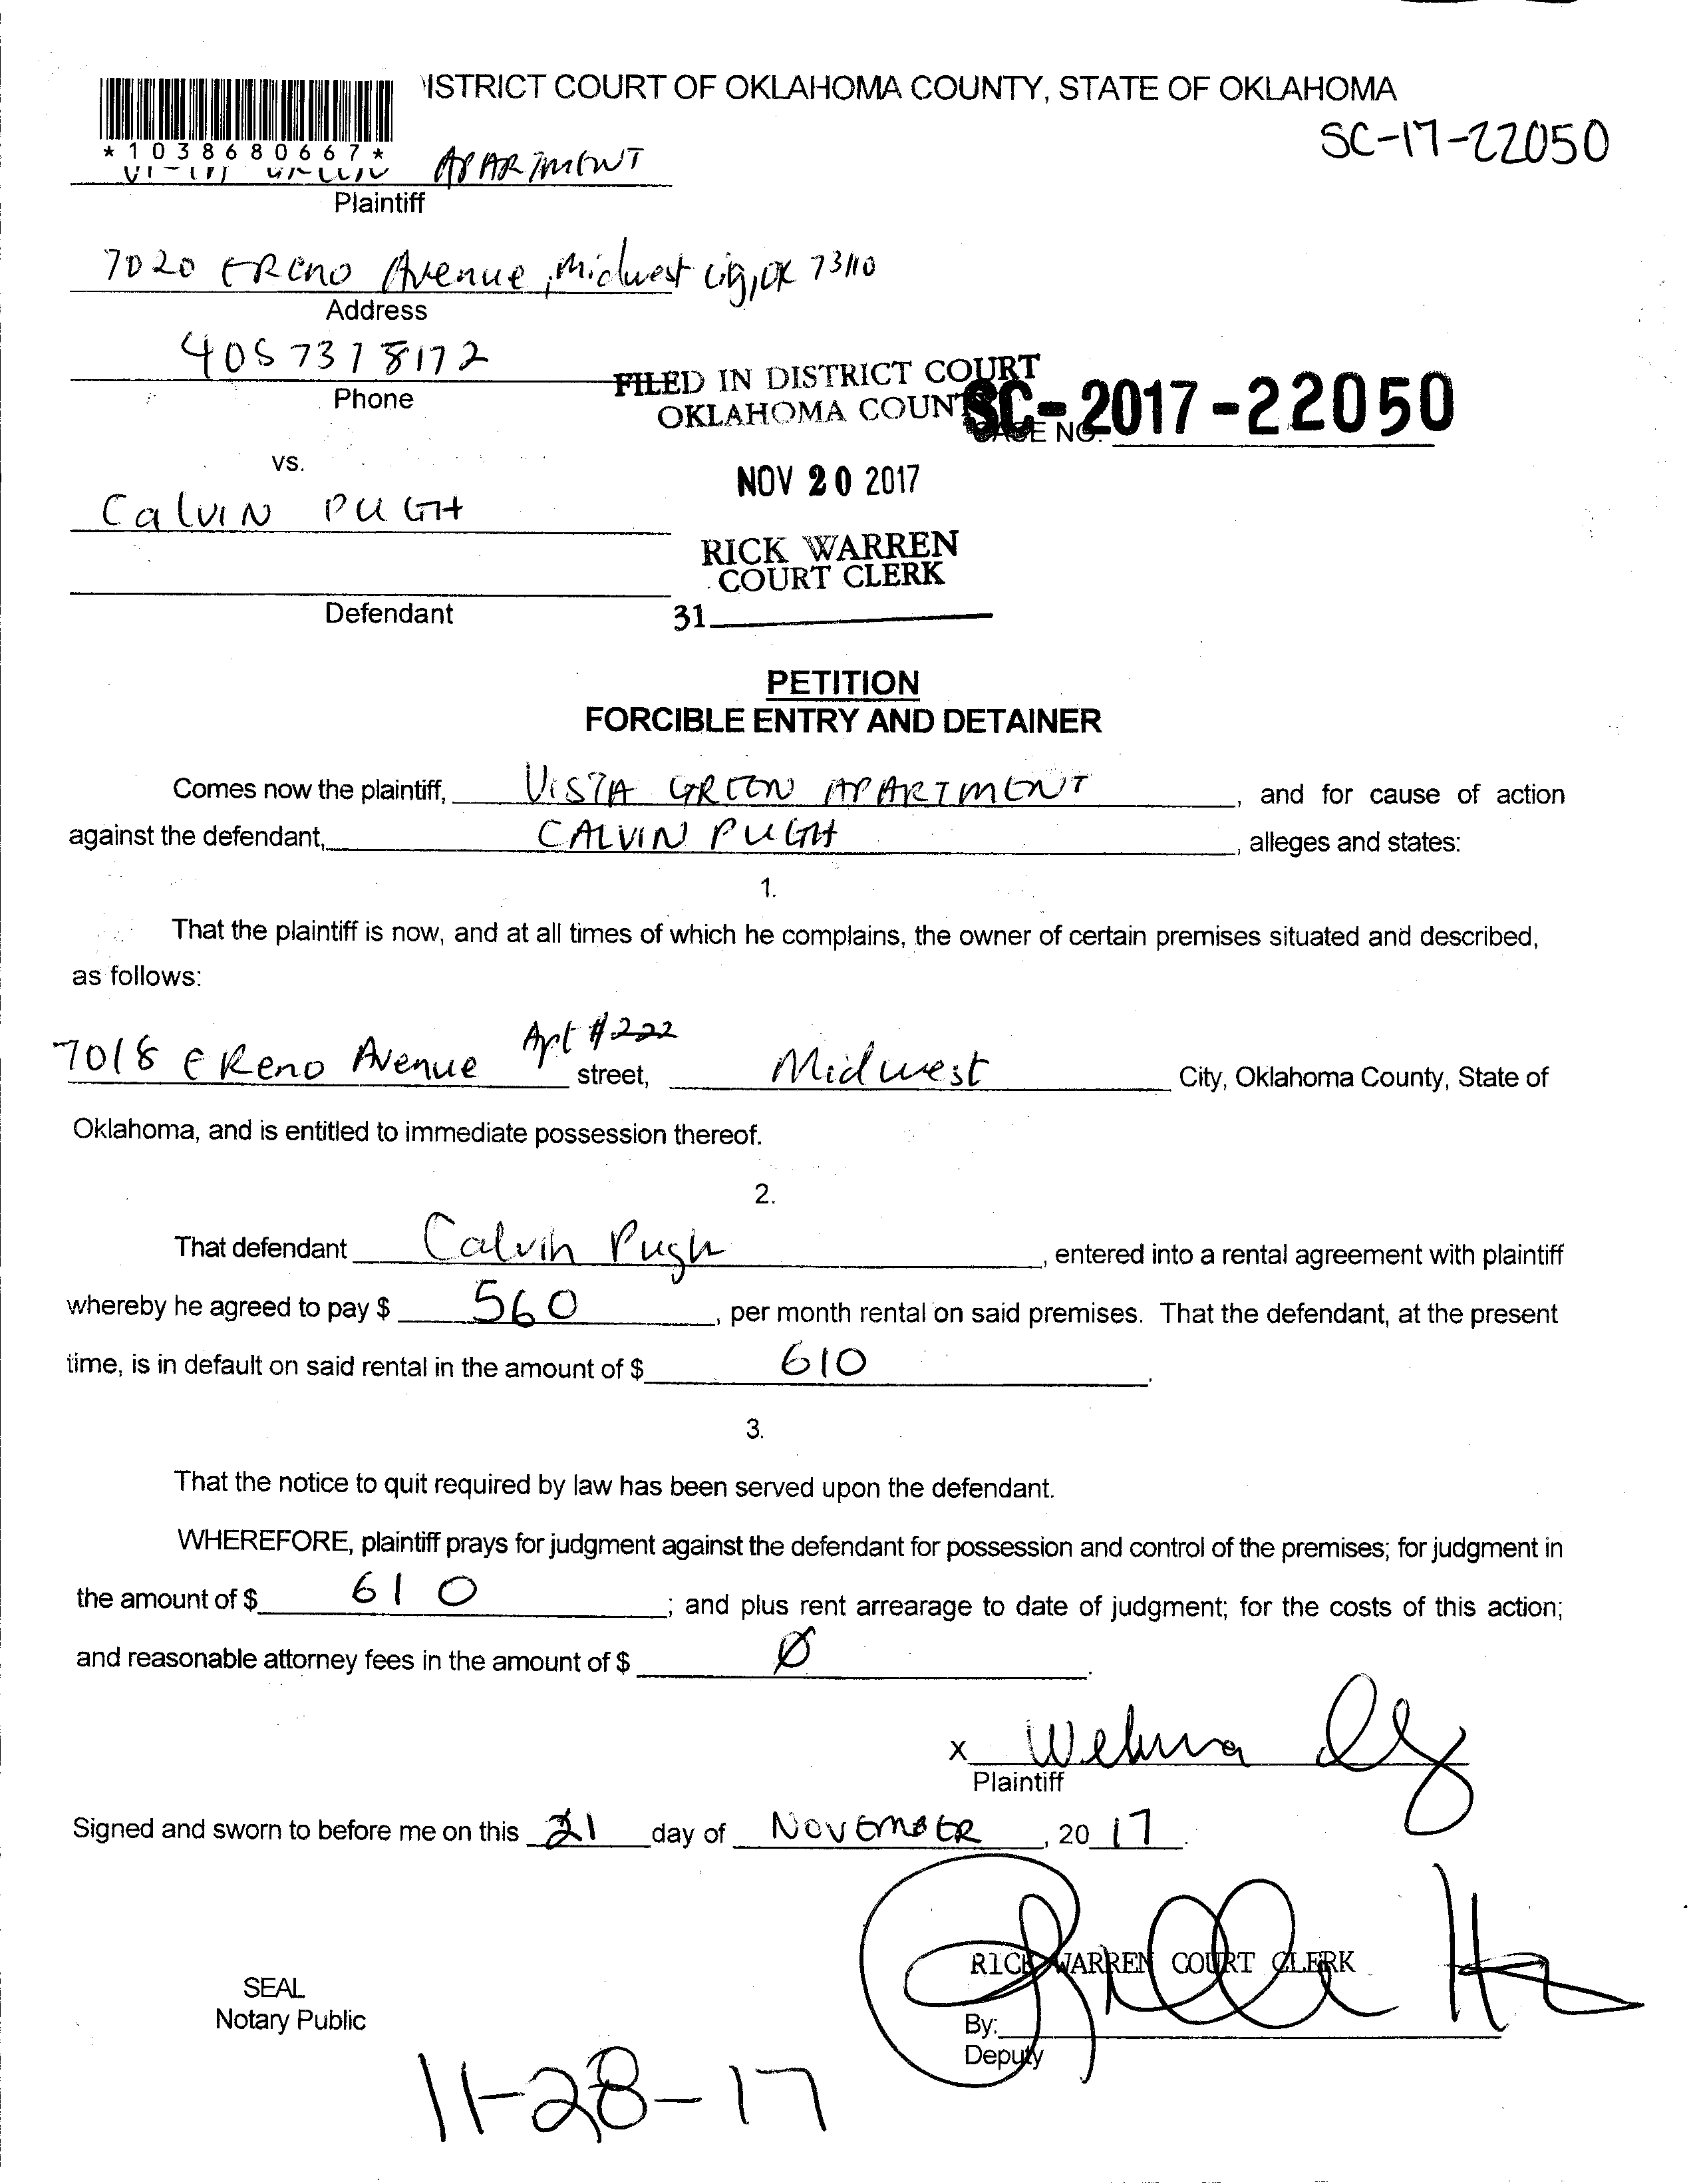 ISTRICT COURT OF OKLAHOMA COUNTY, STATE OF OKLAHOMA
SC-17-22050
*1038680667*
APARTMENT
Plaintiff
7020 E Reno Avenue, Midwest City, OK 73110
Address
405 737 8172
Phone
FILED IN DISTRICT COURT
OKLAHOMA COUNT
CASE NO. SC-2017-22050
vs.
NOV 20 2017
Calvin PUGH
RICK WARREN
COURT CLERK
Defendant
31
PETITION
FORCIBLE ENTRY AND DETAINER
Comes now the plaintiff, VISTA GREEN APARTMENT, and for cause of action
against the defendant, CALVIN PUGH, alleges and states:
1.
That the plaintiff is now, and at all times of which he complains, the owner of certain premises situated and described,
as follows:
7018 E Reno Avenue Apt #222 street, Midwest City, Oklahoma County, State of
Oklahoma, and is entitled to immediate possession thereof.
2.
That defendant Calvin Pugh, entered into a rental agreement with plaintiff
whereby he agreed to pay $ 560, per month rental on said premises. That the defendant, at the present
time, is in default on said rental in the amount of $ 610.
3.
That the notice to quit required by law has been served upon the defendant.
WHEREFORE, plaintiff prays for judgment against the defendant for possession and control of the premises; for judgment in
the amount of $ 610; and plus rent arrearage to date of judgment; for the costs of this action;
and reasonable attorney fees in the amount of $ Ø.
x
Plaintiff
Signed and sworn to before me on this 21 day of NOVEMBER, 20 17.
RICK WARREN COURT CLERK
SEAL
Notary Public
By:
Deputy
11-28-17